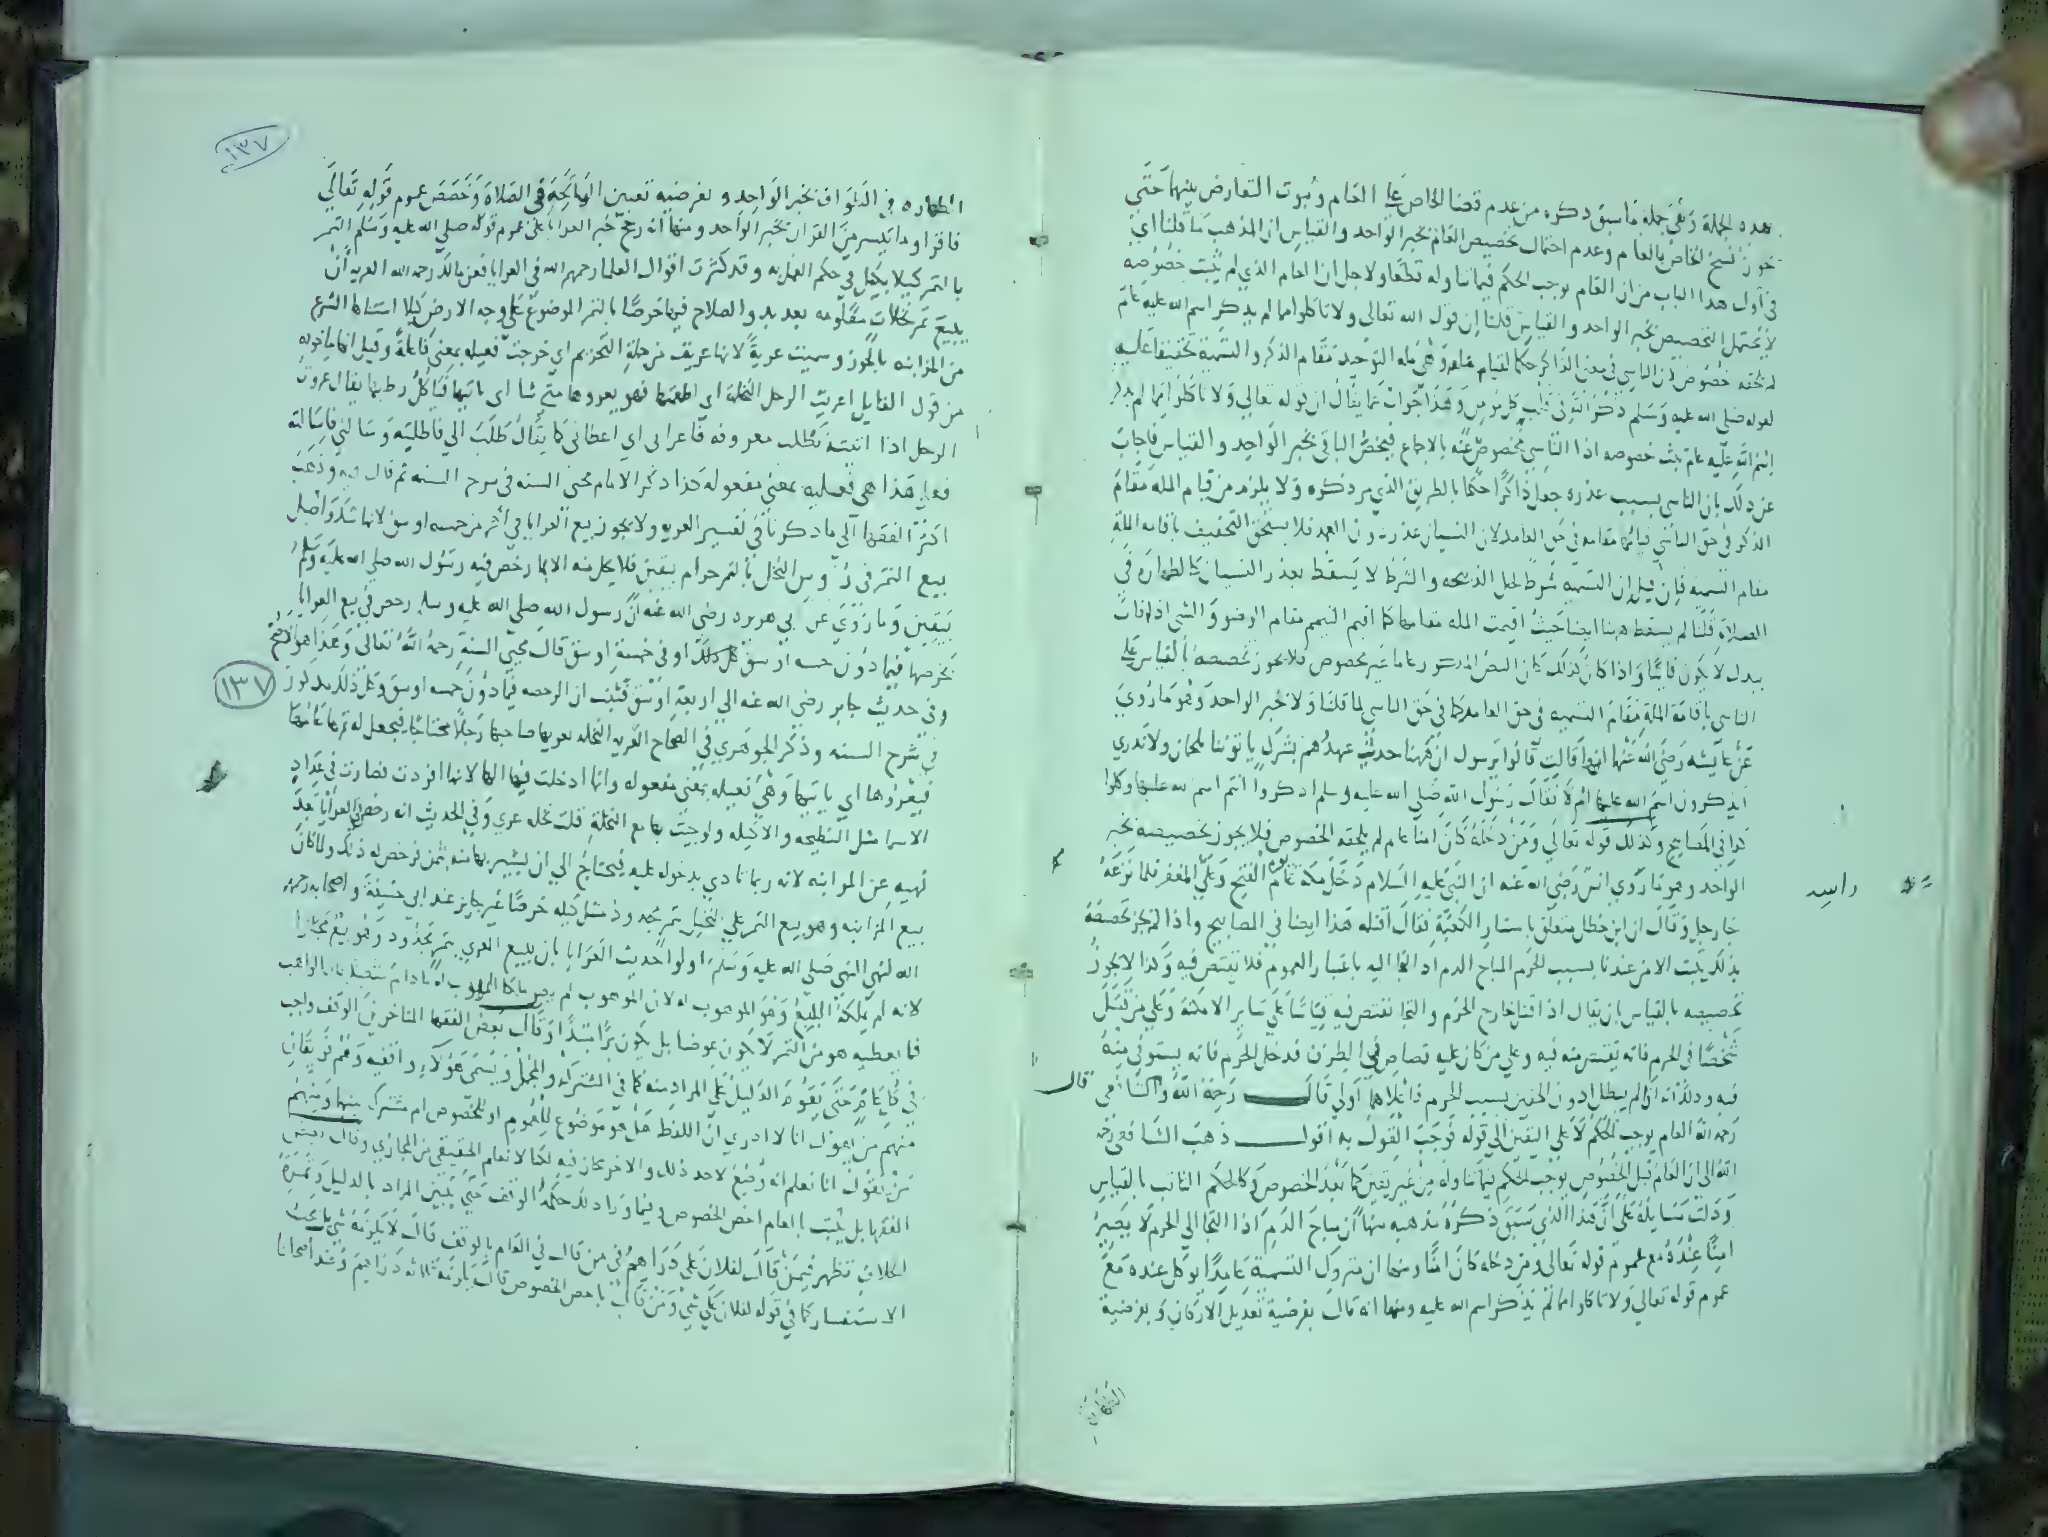 هذه الجملة وهي جملة ما سبق ذكره من عدم قضا الخاص على العام وثبوت التعارض بينهما حتى
يجوز نسخ الخاص بالعام وعدم احتمال تخصيص العام بخبر الواحد والقياس ان المذهب ما قلنا اي
في اول هذا الباب من ان العام يوجب الحكم فيما تناوله قطعا ولاجل ان العام الذي لم يثبت خصوصه
لا يحتمل التخصيص بخبر الواحد والقياس قلنا ان قول الله تعالى ولا تاكلوا مما لم يذكر اسم الله عليه عام
لم يلحقه خصوص لان الناسي في معنى الذاكر حكما لقيام مقامه وهي ملة التوحيد مقام الذكر والتسمية تخفيفا عليه
لقوله صلى الله عليه وسلم ذكر الله في قلب كل مومن وهذا جواب عما يقال ان قوله تعالى ولا تاكلوا مما لم يذكر
اسم الله عليه عام ثبت خصوصه اذا الناسي مخصوص عنه بالاجماع فيخص الباقي بخبر الواحد والقياس فاجاب
عن ذلك بان الناسي بسبب عذره جعل ذاكرا حكما بالطريق الذي مر ذكره ولا يلزم من قيام الملة مقام
الذكر في حق الناسي قيامها مقامه في حق العامد لان النسيان عذر دون العمد فلا يستحق التخفيف باقامة الملة
مقام التسمية فان قيل ان التسمية شرط لحل الذبيحة والشرط لا يسقط بعذر النسيان كالطهارة في
الصلاة قلنا لم يسقط هنا ايضا حيث اقيمت الملة مقامها كما اقيم التيمم مقام الوضو والشي اذا فات
ببدل لا يكون فايتا واذا كان كذلك كان النص المذكور عاما غير مخصوص فلا يجوز تخصيصه بالقياس على
الناسي باقامة الملة مقام التسمية في حق العامد كما في حق الناسي لما قلنا ولا بخبر الواحد وهو ما روي
عن عايشه رضي الله عنها انها قالت قالوا يرسول ان ههنا حديث عهدهم بشرك ياتوننا بلحمان ولا ندري
ايذكرون اسم الله عليها ام لا فقال رسول الله صلى الله عليه وسلم اذكروا انتم اسم الله عليها وكلوا
كذا في المصابيح وكذلك قوله تعالى ومن دخله كان امنا عام لم يلحقه الخصوص فلا يجوز تخصيصه بخبر
الواحد وهو ما روي انس رضي الله عنه ان النبي عليه السلام دخل مكة عام الفتح وعلى المغفر فلما نزعه
يوم
راسه
جا رجل وقال ان ابن خطل متعلق باستار الكعبة فقال اقتله هذا ايضا في المصابيح واذا لم يجز تخصيصه
بذلك يثبت الامن عندنا بسبب الحرم المباح الدم اذا التجا اليه باعتبار العموم فلا يقتص فيه وكذا لا يجوز
تخصيصه بالقياس بان يقال اذا قتل خارج الحرم والتجا يقتص فيه قياسا على ساير الامكنة وعلى من قتل
شخصا في الحرم فانه يقتص منه فيه وعلى من كان عليه قصاص في الطرف فدخل الحرم فانه يستوفى منه
فيه وذلك انه لما لم يبطل ادون الحقين بسبب الحرم فاعلاهما اولى قال رحمه الله والشافعي
قال
رحمه الله العام يوجب الحكم لا على اليقين الى قوله فوجب القول به اقول ذهب الشافعي رحمه
الله الى ان العام قبل الخصوص يوجب الحكم فيما تناوله من غير يقين كما بعد الخصوص وكالحكم الثابت بالقياس
ودلت مسايله على ان هذا الذي سبق ذكره مذهبه منها ان مباح الدم اذا التجا الى الحرم لا يصير
امنا عنده مع عموم قوله تعالى ومن دخله كان امنا ومنها ان متروك التسمية عامدا يوكل عنده مع
عموم قوله تعالى ولا تاكلوا مما لم يذكر اسم الله عليه ومنها انه قال بفرضية تعديل الاركان وبفرضية
الطهارة
١٣٧
الطهاره في الطواف بخبر الواحد وبفرضيه تعيين الفاتحة في الصلاة وخصص عموم قوله تعالى
فاقرا وما تيسر من القران بخبر الواحد ومنها انه رجح خبر العرايا على عموم قوله صلى الله عليه وسلم التمر
بالتمر كيلا بكيل في حكم العمل به وقد كثرت اقوال العلما رحمهم الله في العرايا فعن مالك رحمه الله العريه ان
يبيع تمر نخلات معلومه بعد بدو الصلاح فيها خرصا بالتمر الموضوع على وجه الارض كيلا استثناها الشرع
من المزابنه بالجواز وسميت عرية لانها عريت من جملة التحريم اي خرجت فعيله بمعنى فاعلة وقيل انها ماخوذه
من قول القايل اعريت الرجل النخلة اي اطعمتها فهو يعروها متى شا اي ياتيها فياكل رطبها يقال عروت
الرجل اذا اتيته تطلب معروفه فاعراني اي اعطاني كما يقال طلب الي فاطلبته وسالني فاسالته
فعلى هذا هي فعيله بمعنى مفعوله هذا ذكر الامام محي السنه في شرح السنه ثم قال فيه وذهب
اكثر الفقها الى ما ذكرنا في تفسير العريه ولا يجوز بيع العرايا في اكثر من خمسه اوسق لانها شك واصل
بيع التمر في رؤوس النخل بالتمر حرام بيقين فلا يحل منه الا بما رخص فيه رسول الله صلى الله عليه وسلم
بيقين وما روي عن ابي هريره رضي الله عنه ان رسول الله صلى الله عليه وسلم رخص في بيع العرايا
بخرصها فيما دون خمسه اوسق او في خمسة اوسق قال محي السنة رحمه الله تعالى وهذا هو الاصح
١٣٧
وفي حديث جابر رضي الله عنه الى اربعة اوسق فثبت ان الرخصه فيما دون خمسه اوسق وكل ذلك مذكور
في شرح السنه وذكر الجوهري في الصحاح العريه النخله يعريها صاحبها رجلا محتاجا فيجعل له ثمرها عامها
فيعروها اي ياتيها وهي فعيله بمعنى مفعوله وانما ادخلت فيها الها لانها افردت فصارت في عداد
الاسما مثل النطيحه والاكيله ولو جيت بها مع النخلة قلت نخله عري وفي الحديث انه رخص في العرايا بعد
نهيه عن المزابنه لانه ربما تاذي بدخوله عليه فيحتاج الى ان يشتريها منه بثمن فرخص له ذلك ولما كان
بيع المزابنه وهو بيع التمر على النخيل بتمر مجدوذ مثل كيله خرصا غير جايز عند ابي حنيفة واصحابه رحمهم
الله لنهي النبي صلى الله عليه وسلم اولوا حديث العرايا بان يبيع العري بتمر مجذوذ وهو بيع مجازا
لانه لم يملكه البايع وهو الموهوب له لان الموهوب لم يصر ملكا للموهوب له ما دام متصلا بملك الواهب
فما يعطيه هو من التمر لا يكون عوضا بل يكون برا مبتدا وقال بعض الفقها المتاخرين الوقف واجب
في كل عام حتى يقوم الدليل على المراد منه كما في المشترك والمجمل ويسمى هولاء واقفيه وهم فريقان
منهم من يقول انا لا ادري ان اللفظ هل هو موضوع للعموم او للخصوص ام مشترك بينهما ومنهم
من يقول انا نعلم انه وضع لاحد ذلك والاخر مجاز فيه لكنا لا نعلم الحقيقي من المجازي وقال بعض
الفقها بل يثبت بالعام اخص الخصوص وفيما وراء ذلك حكمه الوقف حتى يتبين المراد بالدليل وثمرة
الخلاف تظهر فيمن قال لفلان علي دراهم ففي من قال في العام بالوقف قال لا يلزمه شي بل يجب
الاستفسار كما في قوله لفلان علي شي ومن قال باخص الخصوص قال يلزمه ثلاثه دراهم وعند اصحابنا